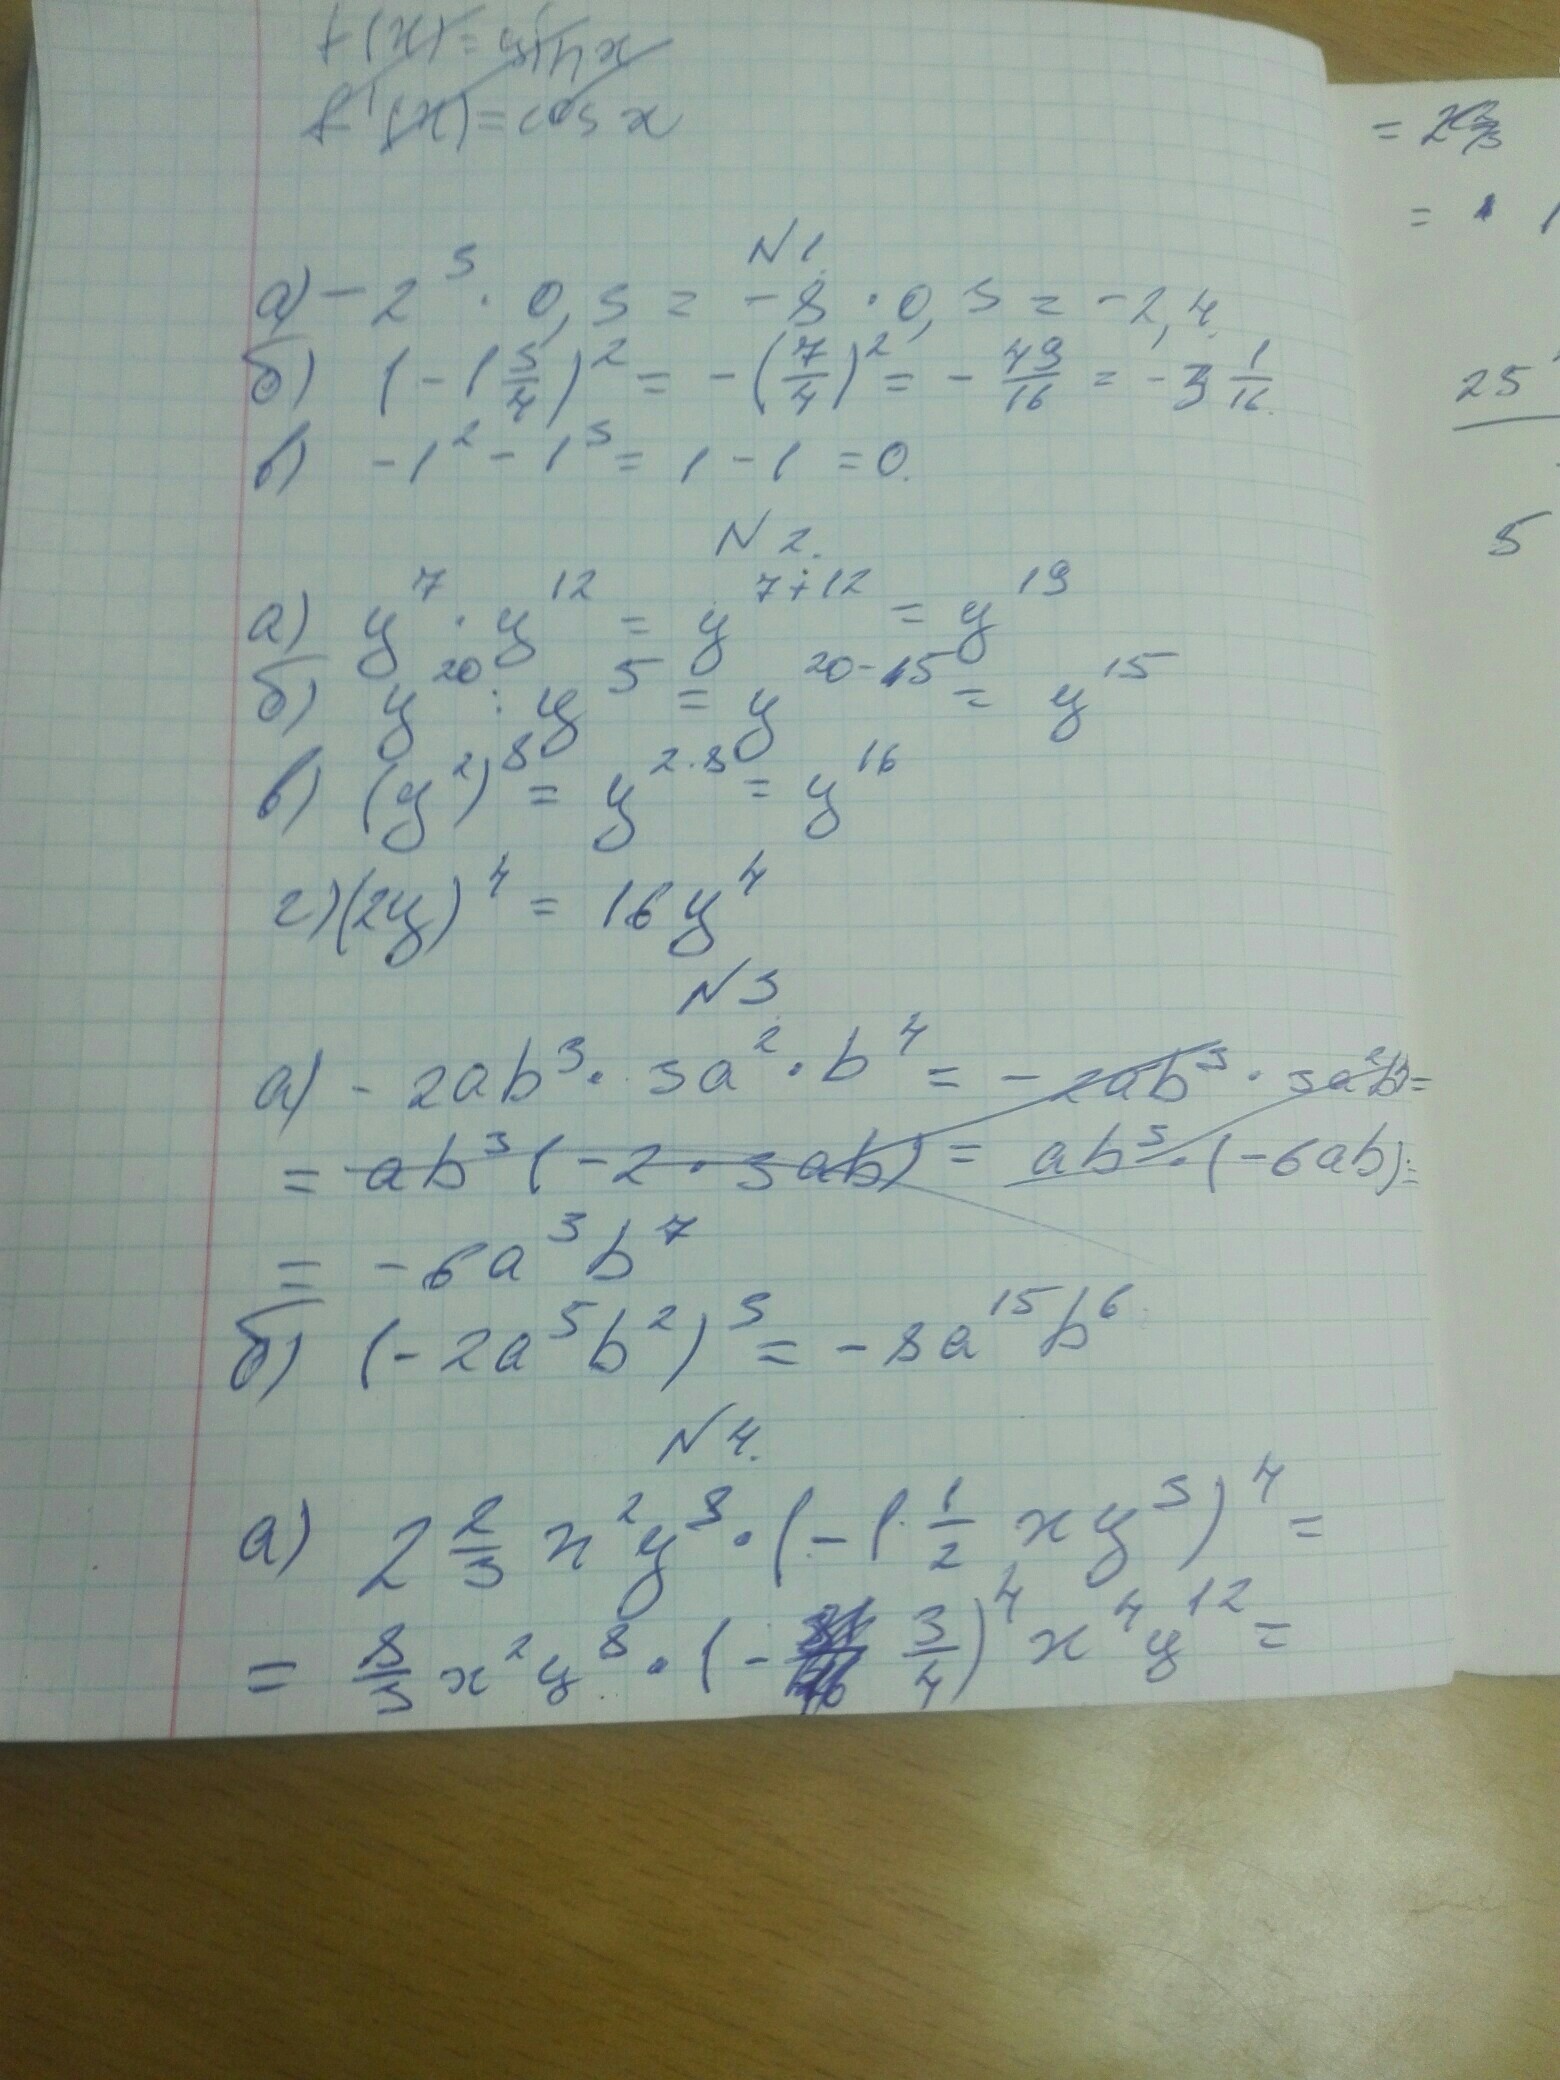 f(x) = sin x
f'(x) = cos x
= 2
=
25
5
N1.
а) -2³ · 0,3 = -8 · 0,3 = -2,4.
б) (-1 3/4)² = -(7/4)² = - 49/16 = -3 1/16.
в) -1² - 1³ = 1 - 1 = 0.
N2.
а) y⁷ · y¹² = y⁷⁺¹² = y¹⁹
б) y²⁰ : y⁵ = y²⁰⁻¹⁵ = y¹⁵
в) (y²)⁸ = y²·⁸ = y¹⁶
г) (2y)⁴ = 16y⁴
N3.
а) -2ab³ · 3a² · b⁴ = -2ab³ · 3a²b =
= ab³(-2 · 3ab) = ab³ · (-6ab) =
= -6a³b⁷
б) (-2a⁵b²)³ = -8a¹⁵b⁶.
N4.
а) 2 2/3 x²y⁸ · (-1 1/2 xy³)⁴ =
= 8/3 x²y⁸ · (- 3/4)⁴ x⁴y¹² =